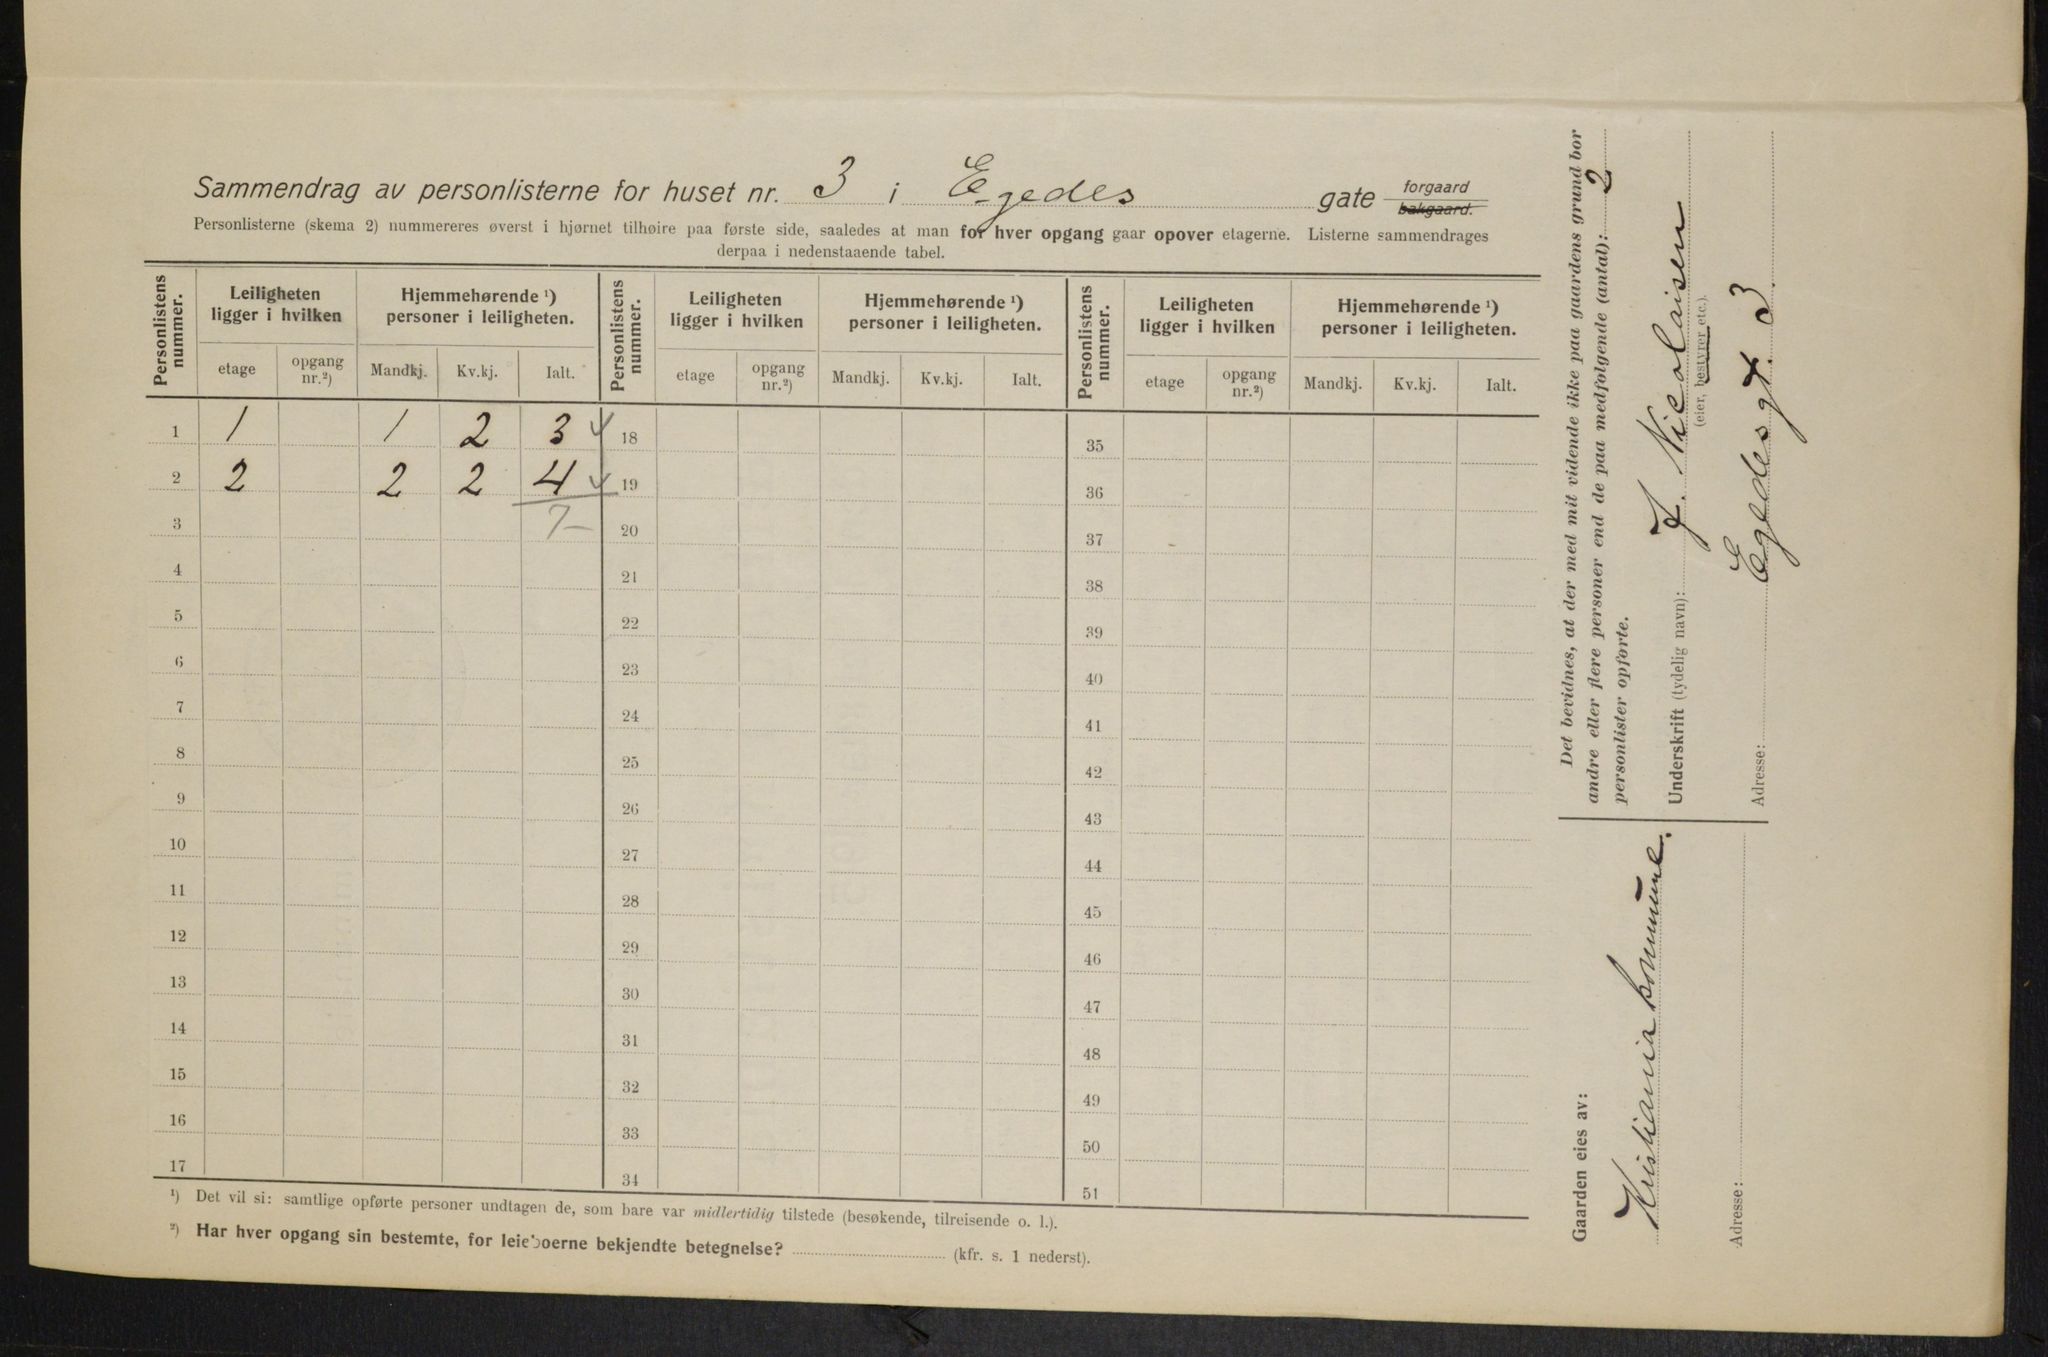 Sammendrag av personlisterne for huset nr. 3 i Egedes gate forgaard
bakgaard.
Personlisterne (skema 2) nummereres øverst i hjørnet tilhøire paa første side, saaledes at man for hver opgang gaar opover etagerne. Listerne sammendrages
derpaa i nedenstaaende tabel.
Personlistens nummer. Leiligheten ligger i hvilken Hjemmehørende ¹) personer i leiligheten. Personlistens nummer. Leiligheten ligger i hvilken Hjemmehørende ¹) personer i leiligheten. Personlistens nummer. Leiligheten ligger i hvilken Hjemmehørende ¹) personer i leiligheten.
etage opgang nr.²) Mandkj. Kv.kj. Ialt. etage opgang nr.²) Mandkj. Kv.kj. Ialt. etage opgang nr.²) Mandkj. Kv.kj. Ialt.
1 1 1 2 3 18 35
2 2 2 2 4 19 36
3 7 20 37
4 21 38
5 22 39
6 23 40
7 24 41
8 25 42
9 26 43
10 27 44
11 28 45
12 29 46
13 30 47
14 31 48
15 32 49
16 33 50
17 34 51
¹) Det vil si: samtlige opførte personer undtagen de, som bare var midlertidig tilstede (besøkende, tilreisende o. l.).
²) Har hver opgang sin bestemte, for leieboerne bekjendte betegnelse? (kfr. s. 1 nederst).
Det bevidnes, at der med mit vidende ikke paa gaardens grund bor
andre eller flere personer end de paa medfølgende (antal): 2
personlister opførte.
Underskrift (tydelig navn): J. Nicolaisen
(eier, bestyrer etc.).
Adresse: Egedes gt. 3
Gaarden eies av:
Kristiania kommune.
Adresse: